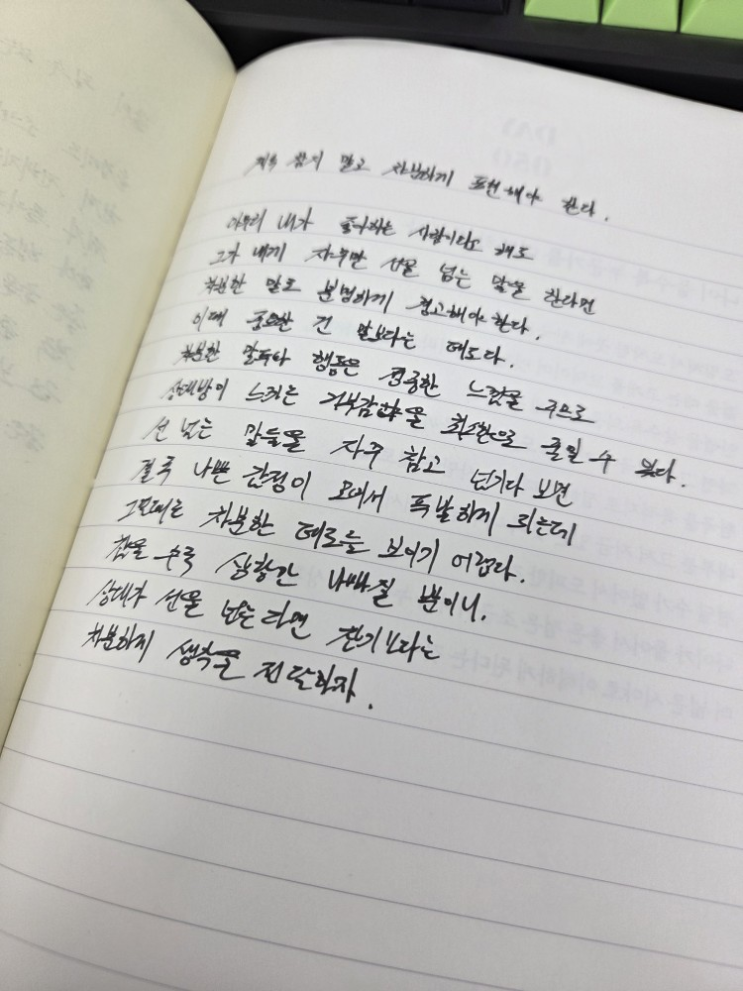 계속 참지 말고 차분하게 표현해야 한다.
아무리 내가 좋아하는 사람이라고 해도
그가 내게 자꾸만 선을 넘는 말을 한다면
차분한 말로 분명하게 경고해야 한다.
이때 중요한 건 말보다는 태도다.
차분한 말투나 행동은 정중한 느낌을 주므로
상대방이 느끼는 거부감을 최소한으로 줄일 수 있다.
선 넘는 말들을 자주 참고 넘기다 보면
결국 나쁜 감정이 모여서 폭발하게 되는데
그때는 차분한 태도를 보이기 어렵다.
참을 수록 상황만 나빠질 뿐이니,
상대가 선을 넘는다면 참기보다는
차분하게 생각을 전달하자.